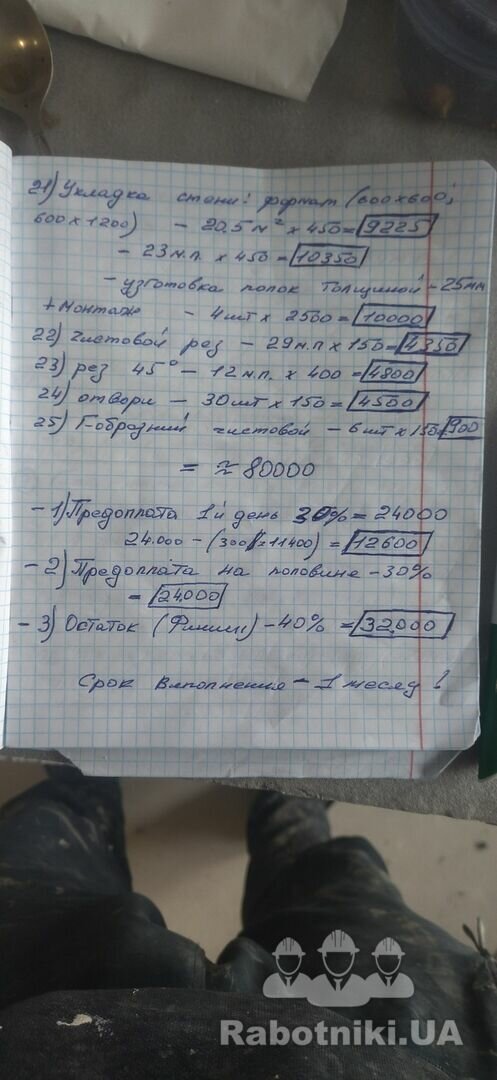 21) Укладка стени! формат (600х600;
600х1200) - 20.5 м² х 450= 9225
- 23 м.п. х 450 = 10350
- узготовка полок толщиной - 25мм
+ монтаж - 4шт х 2500 = 10000
22) Чистовой рез - 29 м.п х 150 = 4350
23) рез 45° - 12 м.п. х 400 = 4800
24) отвори - 30шт х 150 = 4500
25) Г-образний чистовой - 6шт х 150= 900
= ≈ 80000
- 1) Предоплата 1й день 30% = 24000
24.000 - (300$=11400) = 12600
- 2) Предоплата на половине - 30%
= 24.000
- 3) Остаток (Финиш) - 40% = 32.000
Срок виполнения - 1 месяц !
Rabotniki.UA